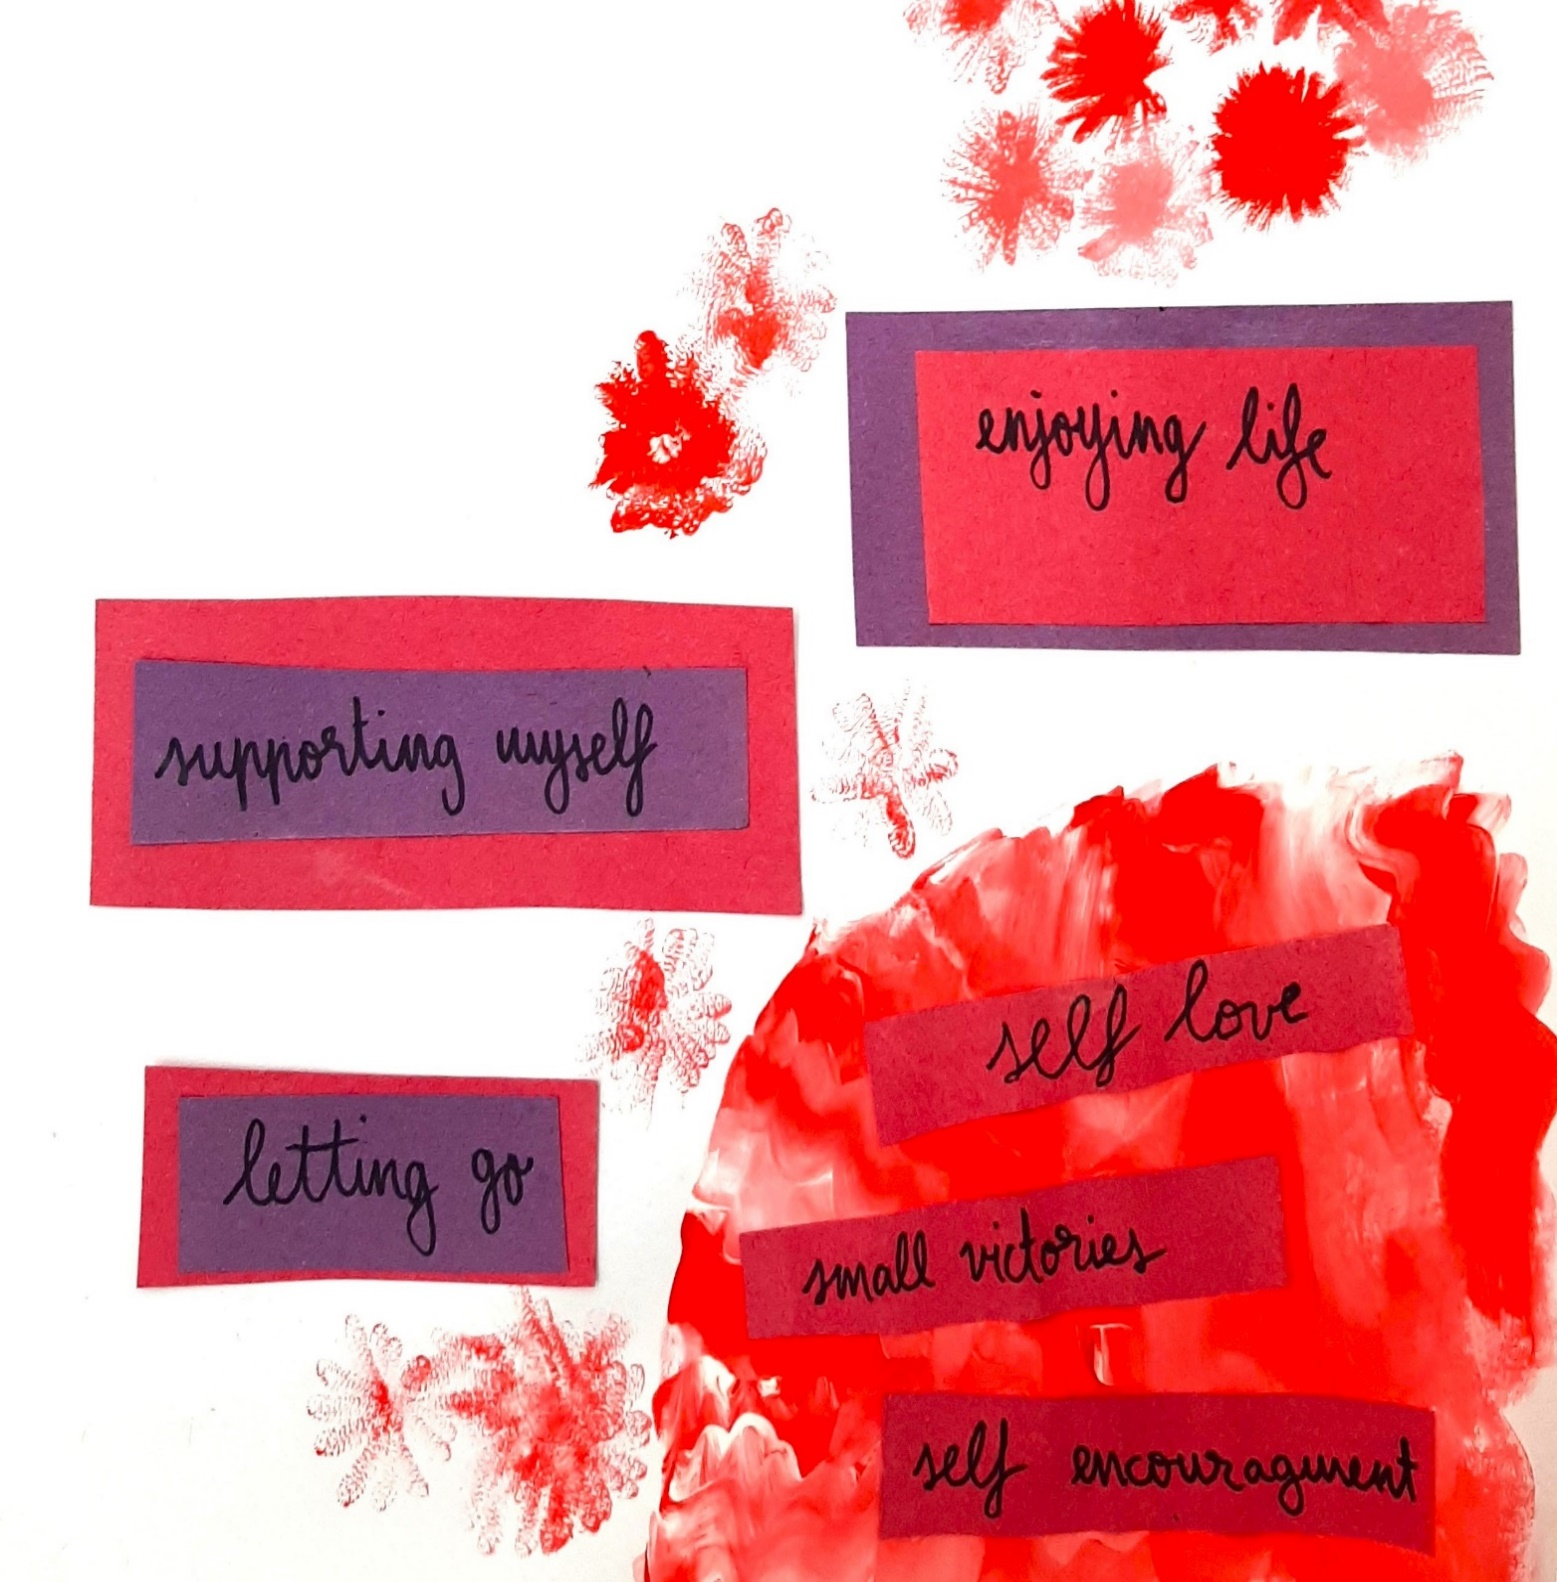 enjoying life
supporting myself
self love
letting go
small victories
self encouragment